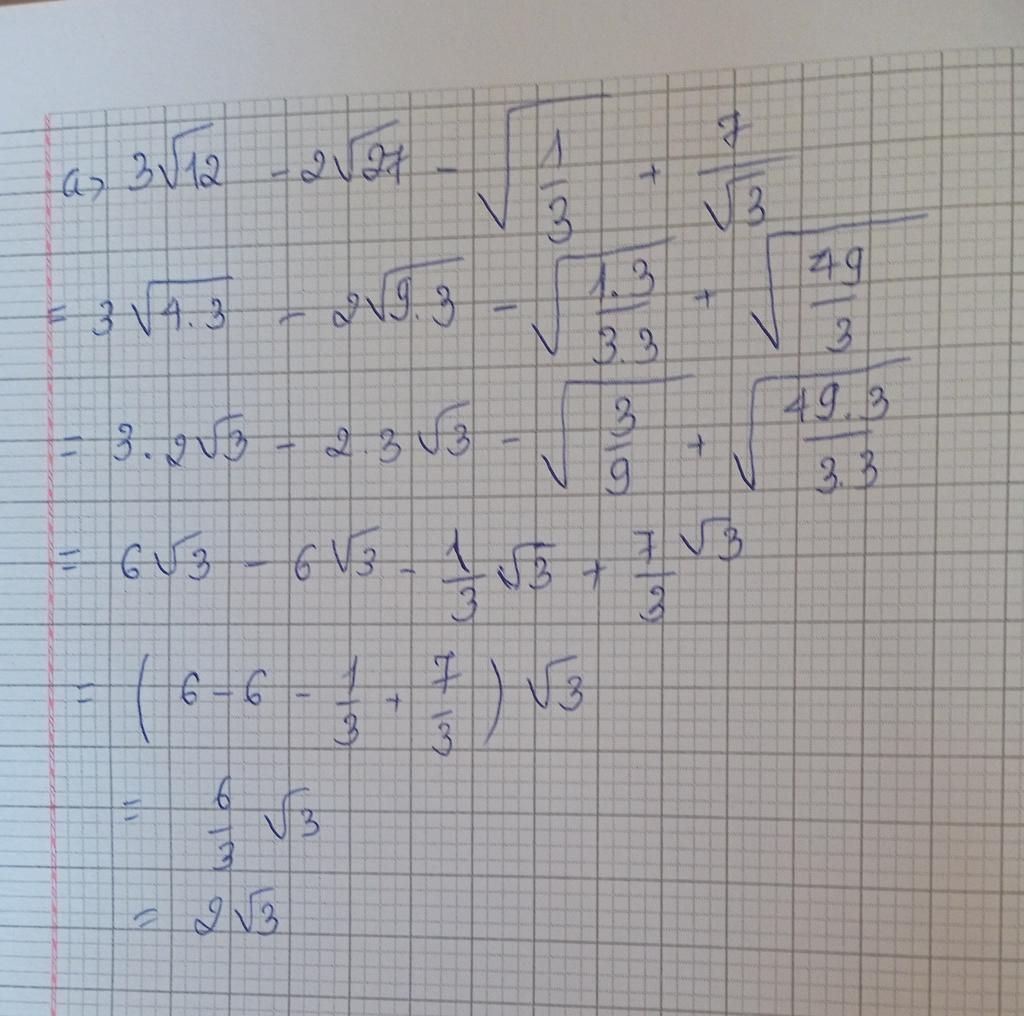 a> 3√12 - 2√27 - √(1/3) + 7/√3
= 3√(4.3) - 2√(9.3) - √(1.3/3.3) + √(49/3)
= 3.2√3 - 2.3√3 - √(3/9) + √(49.3/3.3)
= 6√3 - 6√3 - 1/3 √3 + 7/3 √3
= (6 - 6 - 1/3 + 7/3) √3
= 6/3 √3
= 2√3